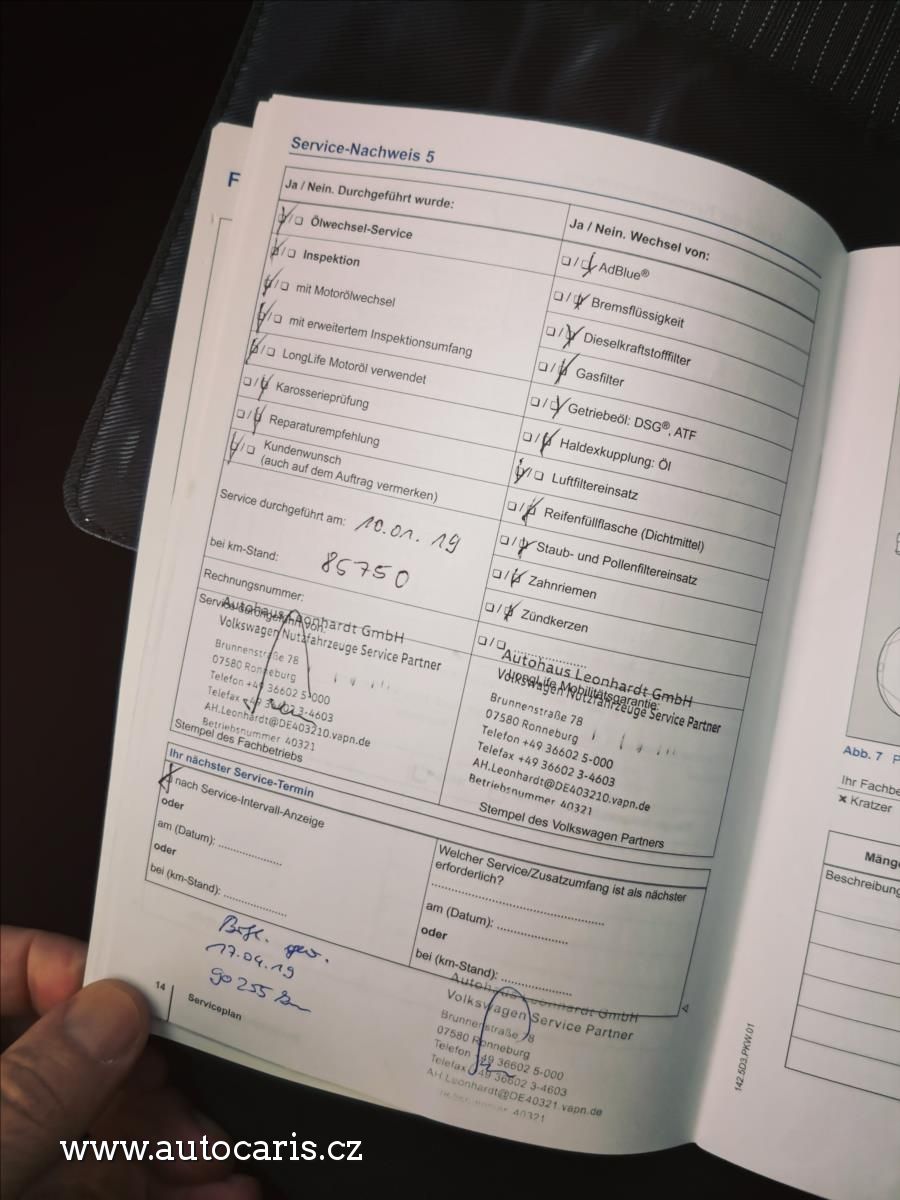 Service-Nachweis 5
F
Ja / Nein. Durchgeführt wurde:
Ölwechsel-Service
Inspektion
mit Motorölwechsel
mit erweitertem Inspektionsumfang
LongLife Motoröl verwendet
Karosserieprüfung
Reparaturempfehlung
Kundenwunsch
(auch auf dem Auftrag vermerken)
Service durchgeführt am: 10.01.19
bei km-Stand: 85750
Rechnungsnummer:
Service durchgeführt von:
Autohaus Leonhardt GmbH
Volkswagen Nutzfahrzeuge Service Partner
Brunnenstraße 78
07580 Ronneburg
Telefon +49 36602 5-000
Telefax +49 36602 3-4603
AH.Leonhardt@DE403210.vapn.de
Betriebsnummer 40321
Stempel des Fachbetriebs
Ja / Nein. Wechsel von:
AdBlue®
Bremsflüssigkeit
Dieselkraftstofffilter
Gasfilter
Getriebeöl: DSG®, ATF
Haldexkupplung: Öl
Luftfiltereinsatz
Reifenfüllflasche (Dichtmittel)
Staub- und Pollenfiltereinsatz
Zahnriemen
Zündkerzen
LongLife Mobilitätsgarantie:
Autohaus Leonhardt GmbH
Volkswagen Nutzfahrzeuge Service Partner
Brunnenstraße 78
07580 Ronneburg
Telefon +49 36602 5-000
Telefax +49 36602 3-4603
AH.Leonhardt@DE403210.vapn.de
Betriebsnummer 40321
Stempel des Volkswagen Partners
Ihr nächster Service-Termin
nach Service-Intervall-Anzeige
oder
am (Datum):
oder
bei (km-Stand):
Welcher Service/Zusatzumfang ist als nächster
erforderlich?
am (Datum):
oder
bei (km-Stand):
17.04.19
90255 km
Autohaus Leonhardt GmbH
Volkswagen Service Partner
Brunnenstraße 78
07580 Ronneburg
Telefon +49 36602 5-000
Telefax +49 36602 3-4603
AH.Leonhardt@DE40321.vapn.de
40321
14
Serviceplan
142.5D3.PKW.01
Abb. 7 P
Ihr Fachbe
× Kratzer
Mänge
Beschreibung
www.autocaris.cz